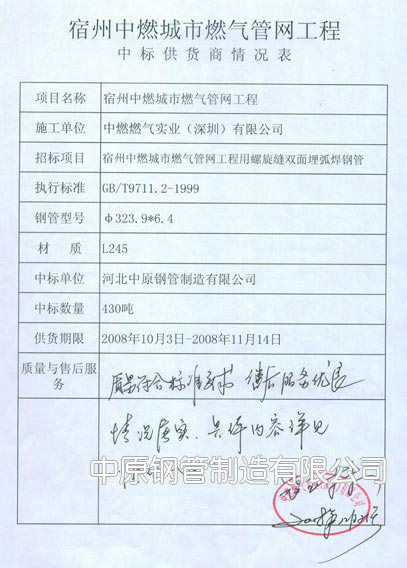 宿州中燃城市燃气管网工程
中标供货商情况表
项目名称 宿州中燃城市燃气管网工程
施工单位 中燃燃气实业（深圳）有限公司
招标项目 宿州中燃城市燃气管网工程用螺旋缝双面埋弧焊钢管
执行标准 GB/T9711.2-1999
钢管型号 φ323.9*6.4
材 质 L245
中标单位 河北中原钢管制造有限公司
中标数量 430吨
供货期限 2008年10月3日-2008年11月14日
质量与售后服务 质量符合标准要求 售后服务优良
情况真实、具体内容详见
中原钢管制造有限公司